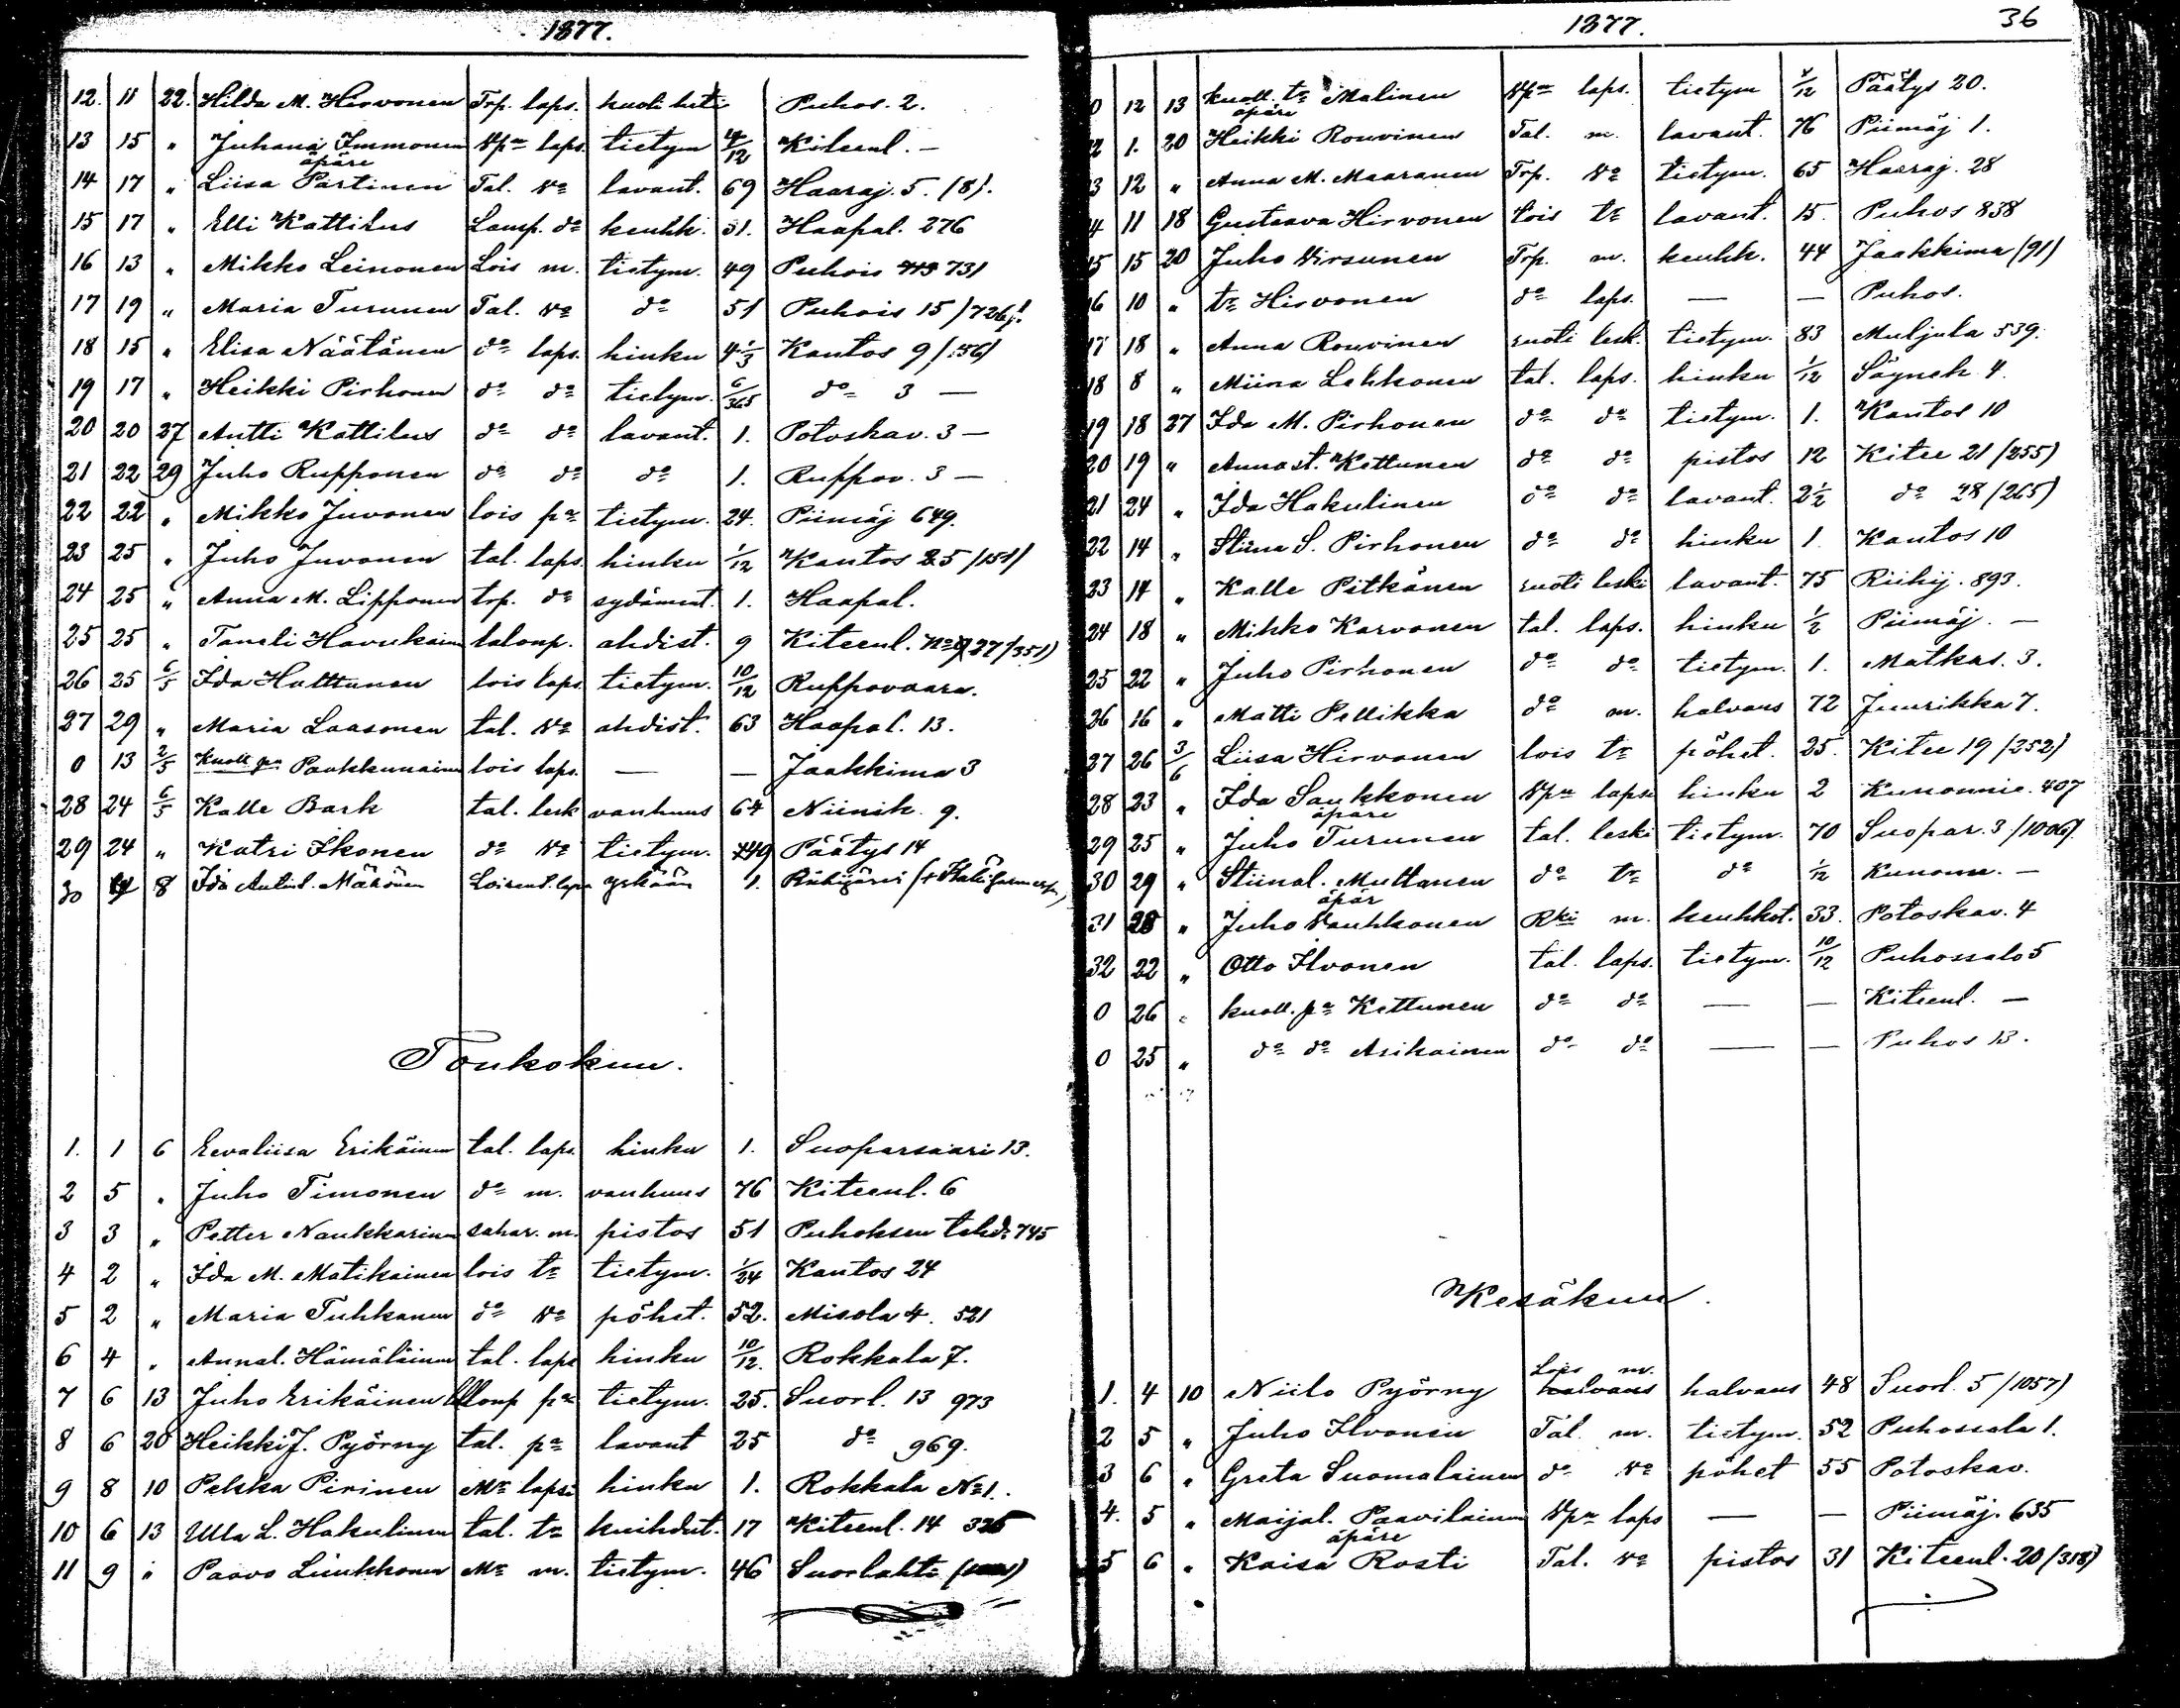 1877.
12. 11 22. Hilda M. Hirvonen Trp. laps. kuoli heti Puhos. 2.
13 15 " Juhana Immonen Npn laps. tietym 4/12 Kiteenl. —
äpäre
14 17 " Liisa Partinen Tal. va lavant. 69 Haaraj. 5. (8).
15 17 " Elli Kattilus Lamp. do keuhk. 31. Haapal. 276
16 13 " Mikko Leinonen Lois m. tietym. 49 Puhois 731
17 19 " Maria Turunen Tal. va do 51 Puhois 15 /726/.
18 15 " Elisa Näätänen do laps. hinku 4 1/3 Kantos 9 /156)
19 17 " Heikki Pirhonen do do tietym. 6/365 do 3 —
20 20 27 Antti Kattilus do do lavant. 1. Potoskav. 3 —
21 22 29 Juho Rupponen do do do 1. Ruppov. 3 —
22 22 " Mikko Juvonen lois pa tietym. 24. Piimäj 649.
23 25 " Juho Juvonen tal. laps. hinku 1/12 Kantos 25 /151/
24 25 " Anna M. Lipponen trp. do sydäment. 1. Haapal.
25 25 " Taneli Havukain talonp. ahdist. 9 Kiteenl. No 27 /351)
26 25 6/5 Ida Halttunen lois laps. tietym. 10/12 Ruppovaara.
27 29 " Maria Laasonen tal. va ahdist. 63 Haapal. 13.
0 13 2/5 Kuoll pa Paukkunainen lois laps. — — Jaakkima 3
28 24 6/5 Kalle Bark tal. lesk vanhuus 64 Niinik. 9.
29 24 " Katri Ikonen do va tietym. 49 Päätys 14
30 8 Ida Mäkönen Loisent. laps yskään 1. Riihijärvi
Toukokuu.
1. 1 6 Eevaliisa Erikäinen tal. laps. hinku 1. Suoparsaari 13.
2 5 " Juho Timonen do m. vanhuus 76 Kiteenl. 6
3 3 " Petter Naukkarinen sahar. m. pistos 51 Puhoksen tehd. 745
4 2 " Ida M. Matikainen lois tr tietym. 1/24 Kantos 24
5 2 " Maria Tuhkanen do va pöhet. 52. Misola 4. 521
6 4 " Annal. Hämäläinen tal. laps hinku 10/12. Rokkala 7.
7 6 13 Juho Erikäinen pa tietym. 25. Suorl. 13 973
8 6 20 Heikki J. Pyörny tal. pa lavant 25 do 969.
9 8 10 Pekka Pirinen Mn lapsi hinku 1. Rokkala No 1.
10 6 13 Ulla L. Hakulinen tal. tr kuihdut. 17 Kiteenl. 14 325
11 9 " Paavo Liukkonen Mn m. tietym. 46 Suorlahti
1877. 36
0 12 13 kuoll. tr Malinen Npn laps. tietym 1/12 Päätys 20.
äpäre
12 1. 20 Heikki Rouvinen Tal. m. lavant. 76 Piimäj 1.
13 12 " Anna M. Maaranen Trp. va tietym. 65 Haaraj. 28
14 11 18 Gustaava Hirvonen lois tr lavant. 15. Puhos 838
15 15 20 Juho Virsunen Trp. m. keuhk. 44 Jaakkima (91)
16 10 " tr Hirvonen do laps. — — Puhos.
17 18 " Anna Rouvinen ruoti lesk. tietym. 83 Muljula 539.
18 8 " Miina Lehkonen tal. laps. hinku 1/12 Säynek. 4.
19 18 27 Ida M. Pirhonen do do tietym. 1. Kantos 10
20 19 " Annast. Kettunen do do pistos 12 Kitee 21 /255)
21 24 " Ida Hakulinen do do lavant. 2 1/2 do 28 /265)
22 14 " Stiina S. Pirhonen do do hinku 1. Kantos 10
23 14 " Kalle Pitkänen ruoti leski lavant. 75 Riihij. 893.
24 18 " Mikko Karvonen tal. laps. hinku 1/2 Piimäj. —
25 22 " Juho Pirhonen do do tietym. 1. Matkas. 3.
26 16 " Matti Pellikka do m. halvaus 72 Juurikka 7.
27 26 3/6 Liisa Hirvonen lois tr pöhet. 25. Kitee 19 /252)
28 23 " Ida Saukkonen Npn lapsi hinku 2 Kunonnie. 407
äpäre
29 25 " Juho Turunen tal. leski tietym. 70 Suopar. 3 /1006/.
30 29 " Stiinal. Muttanen do tr do 1/12 Kunonn. —
äpär
31 28 " Juho Vauhkonen Rki m. keuhkot. 33. Potoskav. 4
32 22 " Otto Ilvonen tal. laps. tietym. 10/12 Puhossalo 5
0 26 " kuoll. pa Kettunen do do — — Kiteenl. —
0 25 " do do Asikainen do do — — Puhos 13.
Kesäkuu.
Lois m.
1. 4 10 Niilo Pyörny halvaus halvaus 48 Suorl. 5 /1057)
2 5 " Juho Ilvonen Tal. m. tietym. 52 Puhossala 1.
3 6 " Greta Suomalainen do va pöhet 55 Potoskav.
4. 5 " Maijal. Paavilainen Npn laps — — Piimäj. 635
äpäre
5 6 " Kaisa Rosti Tal. va pistos 31 Kiteenl. 20 /318)